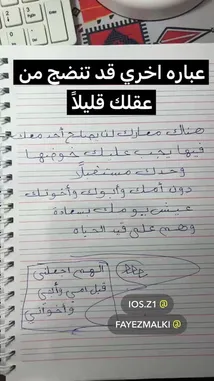 عباره اخري قد تنضج من
عقلك قليلاً
هناك معارك لن يصلح أحد معك
فيها يجب عليك خوضها
وحدك مستقبلاً
دون أمك وأبوك وأخوتك
عيش يومك بسعادة
وهم على قيد الحياه
الهم اجعلني
قبل امي وأبي
وأخواتي
@IOS.Z1
@FAYEZMALKI